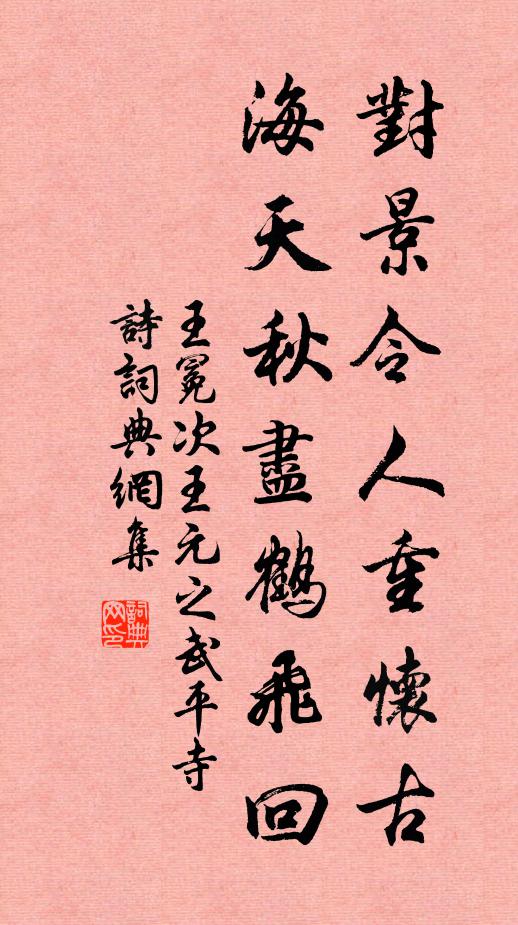 對景令人重懷古
海天秋盡鶴飛回
王冕次王元之武平寺
詩詞典網集
詞典網印